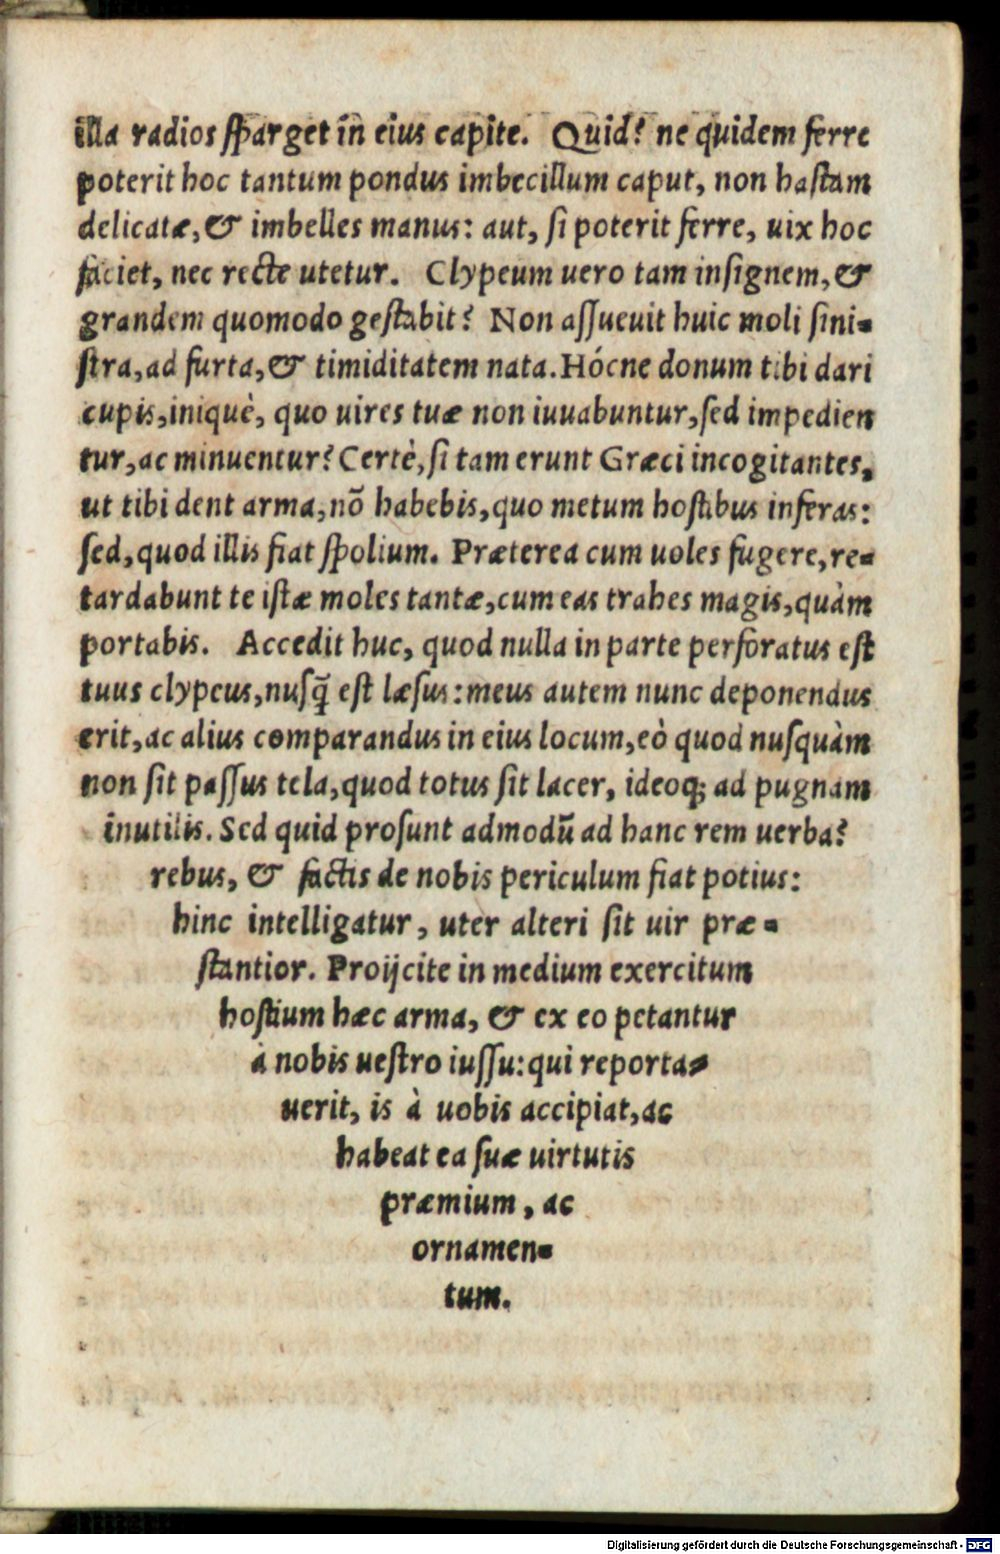 illa radios sparget in eius capite. Quid? ne quidem ferre
poterit hoc tantum pondus imbecillum caput, non hastam
delicatæ, & imbelles manus: aut, si poterit ferre, uix hoc
faciet, nec recte utetur. Clypeum uero tam insignem, &
grandem quomodo gestabit? Non assueuit huic moli sini-
stra, ad furta, & timiditatem nata. Hócne donum tibi dari
cupis, iniquè, quo uires tuæ non iuuabuntur, sed impedien
tur, ac minuentur? Certè, si tam erunt Græci incogitantes,
ut tibi dent arma, nõ habebis, quo metum hostibus inferas:
sed, quod illis fiat spolium. Præterea cum uoles fugere, re-
tardabunt te istæ moles tantæ, cum eas trahes magis, quàm
portabis. Accedit huc, quod nulla in parte perforatus est
tuus clypeus, nusq̃ est læsus: meus autem nunc deponendus
erit, ac alius comparandus in eius locum, eò quod nusquàm
non sit passus tela, quod totus sit lacer, ideoq; ad pugnam
inutilis. Sed quid prosunt admodũ ad hanc rem uerba?
rebus, & factis de nobis periculum fiat potius:
hinc intelligatur, uter alteri sit uir præ-
stantior. Proijcite in medium exercitum
hostium hæc arma, & ex eo petantur
à nobis uestro iussu: qui reporta-
uerit, is à uobis accipiat, ac
habeat ea suæ uirtutis
præmium, ac
ornamen-
tum.
Digitalisierung gefördert durch die Deutsche Forschungsgemeinschaft - DFG